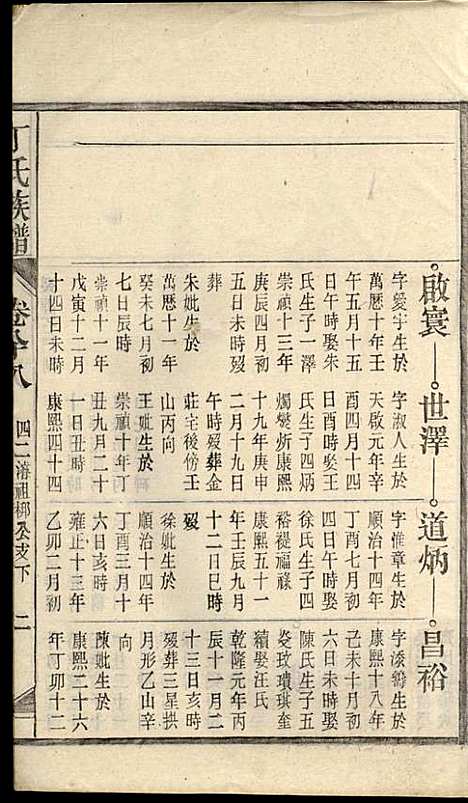 啟寰—世澤—道炳—昌裕
字愛宇生於
萬曆十年壬
午五月十五
日午時娶朱
氏生子一澤
崇禎十三年
庚辰四月初
五日未時殁
葬
朱妣生於
萬曆十一年
癸未七月初
七日辰時
崇禎十一年
戊寅十二月
十四日未時
字淑人生於
天啟元年辛
酉四月十四
日酉時娶王
氏生子四炳
燭爕炘康熙
十九年庚申
二月十九日
午時殁葬金
莊宅後傍王
山丙向
王妣生於
崇禎十年丁
丑九月二十
一日丑時
康熙四十四
字惟章生於
順治十四年
丁酉七月初
四日午時娶
徐氏生子四
裕禔福祿
康熙五十一
年壬辰九月
十二日巳時
殁
徐妣生於
順治十四年
丁酉三月十
六日亥時
雍正十三年
乙卯二月初
字生於
康熙十八年
己未十月初
六日未時娶
陳氏生子四
玫璝琪奎
續娶汪氏
乾隆元年丙
辰十一月二
十三日亥時
殁葬三星拱
月形乙山辛
向
陳妣生於
康熙二十六
年丁卯十二
丁氏族譜
卷八
四二濬祖柳公支下
二